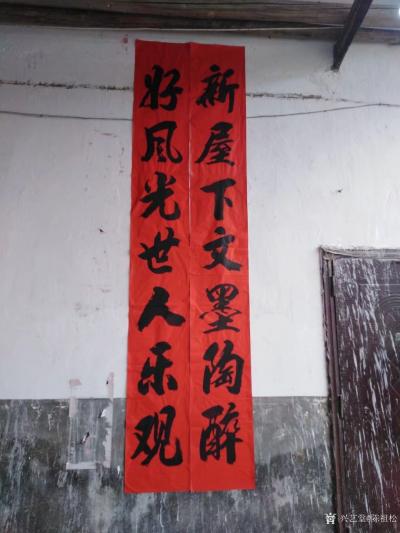 新屋下文墨陶醉
好风光世人乐观
兴艺堂陈祖松